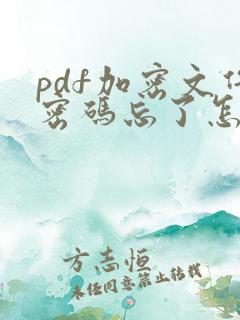 pdf加密文件
密码忘了怎
方志恒
未经同意禁止转载